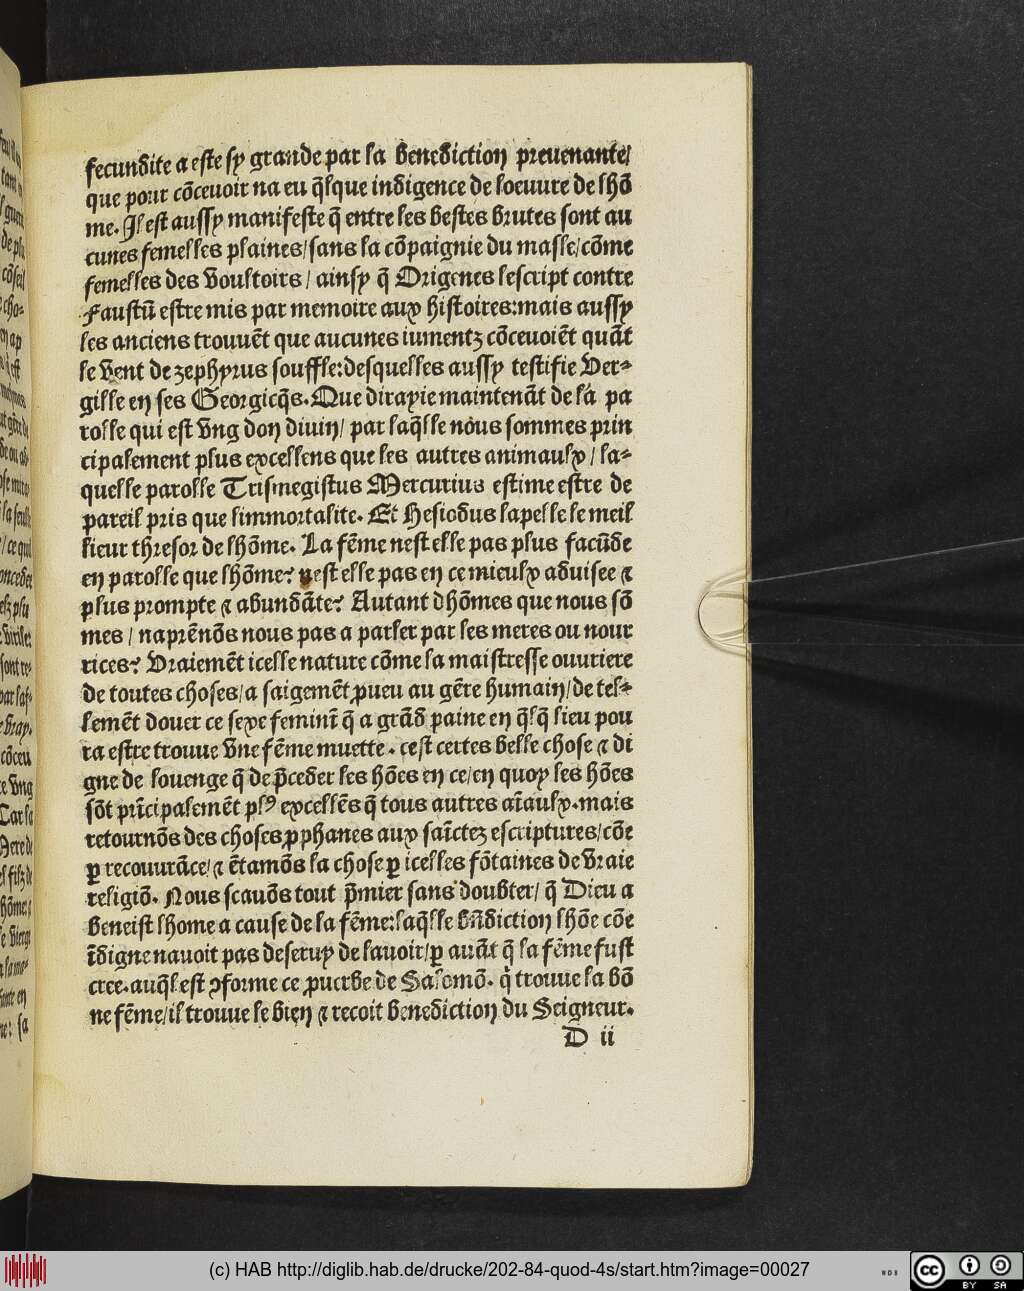 fecundite a este sy grande par la benediction preuenante/
que pour cõceuoir na eu q̃lque indigence de loeuure de lhõ
me. Il est aussy manifeste q̃ entre les bestes brutes sont au
cunes femelles plaines/sans la cõpaignie du masle/cõme
femelles des voultoirs/ ainsy q̃ Origenes lescript contre
Faustũ estre mis par memoire aux histoires:mais aussy
les anciens trouuẽt que aucunes iumentz cõceuoiẽt quãt
le vent de zephyrus souffle:desquelles aussy testifie Ver-
gille en ses Georgicq̃s. Que dirayie maintenãt de la pa
rolle qui est vng don diuin/ par laq̃lle nous sommes prin
cipalement plus excellens que les autres animaulx/la-
quelle parolle Trismegistus Mercurius estime estre de
pareil pris que limmortalite. Et Hesiodus lapelle le meil
lieur thresor de lhõme. La fẽme nest elle pas plus facũde
en parolle que lhõme? nest elle pas en ce mieulx aduisee ⁊
plus prompte ⁊ abundãte? Autant dhõmes que nous sõ
mes/ naprẽnõs nous pas a parler par les meres ou nour
rices? Vraiemẽt icelle nature cõme la maistresse ouuriere
de toutes choses/a saigemẽt ꝓueu au gẽre humain/de tel-
lemẽt douer ce sexe feminĩ q̃ a grãd paine en q̃lq̃ lieu pou
ra estre trouue vne fẽme muette. cest certes belle chose ⁊ di
gne de louenge q̃ de p̃ceder les hões en ce/en quoy les hões
sõt prĩcipalemẽt plꝰ excellẽs q̃ tous autres aĩaulx.mais
retournõs des choses ꝓphanes aux saĩctez escriptures/cõe
ꝑ recouurãce/⁊ ẽtamõs la chose ꝑ icelles fõtaines de vraie
religiõ. Nous scauõs tout p̃mier sans doubter/ q̃ Dieu a
beneist lhome a cause de la fẽme:laq̃lle bñdiction lhõe cõe
ĩdigne nauoit pas deseruy de lauoir/ꝑ auãt q̃ la fẽme fust
cree.auq̃l est ꝯforme ce ꝓuerbe de Salomõ. q̇ trouue la bõ
ne fẽme/il trouue le bien ⁊ recoit benediction du Seigneur.
D ii
(c) HAB http://diglib.hab.de/drucke/202-84-quod-4s/start.htm?image=00027
cc BY SA